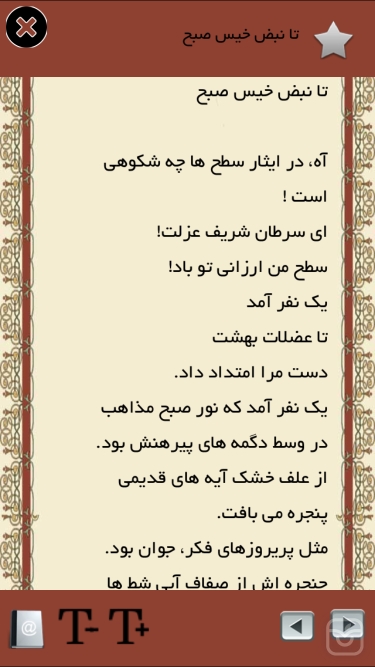 تا نبض خیس صبح
تا نبض خیس صبح
آه، در ایثار سطح ها چه شکوهی
است !
ای سرطان شریف عزلت!
سطح من ارزانی تو باد!
یک نفر آمد
تا عضلات بهشت
دست مرا امتداد داد.
یک نفر آمد که نور صبح مذاهب
در وسط دگمه های پیرهنش بود.
از علف خشک آیه های قدیمی
پنجره می بافت.
مثل پریروزهای فکر، جوان بود.
حنجره اش از صفاف آبی شط ها
@ T- T+